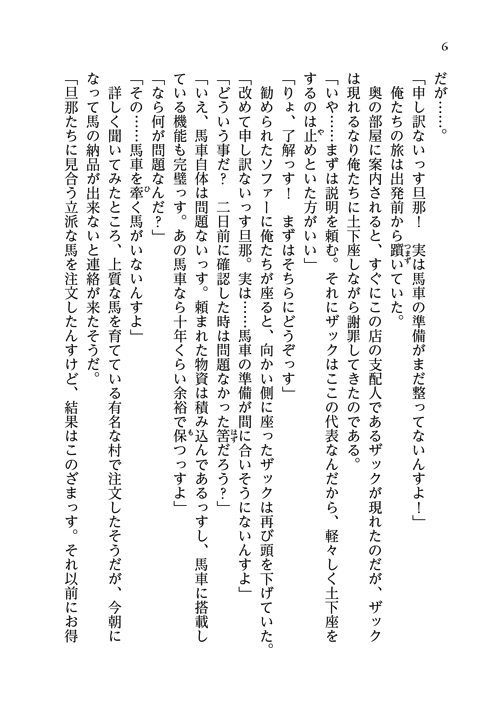 6
だが……。
「申し訳ないっす旦那！　実は馬車の準備がまだ整ってないんすよ！」
俺たちの旅は出発前から躓いていた。
奥の部屋に案内されると、すぐにこの店の支配人であるザックが現れたのだが、ザック
は現れるなり俺たちに土下座しながら謝罪してきたのである。
「いや……まずは説明を頼む。それにザックはここの代表なんだから、軽々しく土下座を
するのは止めといた方がいい」
「りょ、了解っす！　まずはそちらにどうぞっす」
勧められたソファーに俺たちが座ると、向かい側に座ったザックは再び頭を下げていた。
「改めて申し訳ないっす旦那。実は……馬車の準備が間に合いそうにないんすよ」
「どういう事だ？　二日前に確認した時は問題なかった筈だろう？」
「いえ、馬車自体は問題ないっす。頼まれた物資は積み込んであるっすし、馬車に搭載し
ている機能も完璧っす。あの馬車なら十年くらい余裕で保つっすよ」
「なら何が問題なんだ？」
「その……馬車を牽く馬がいないんすよ」
詳しく聞いてみたところ、上質な馬を育てている有名な村で注文したそうだが、今朝に
なって馬の納品が出来ないと連絡が来たそうだ。
「旦那たちに見合う立派な馬を注文したんすけど、結果はこのざまっす。それ以前にお得